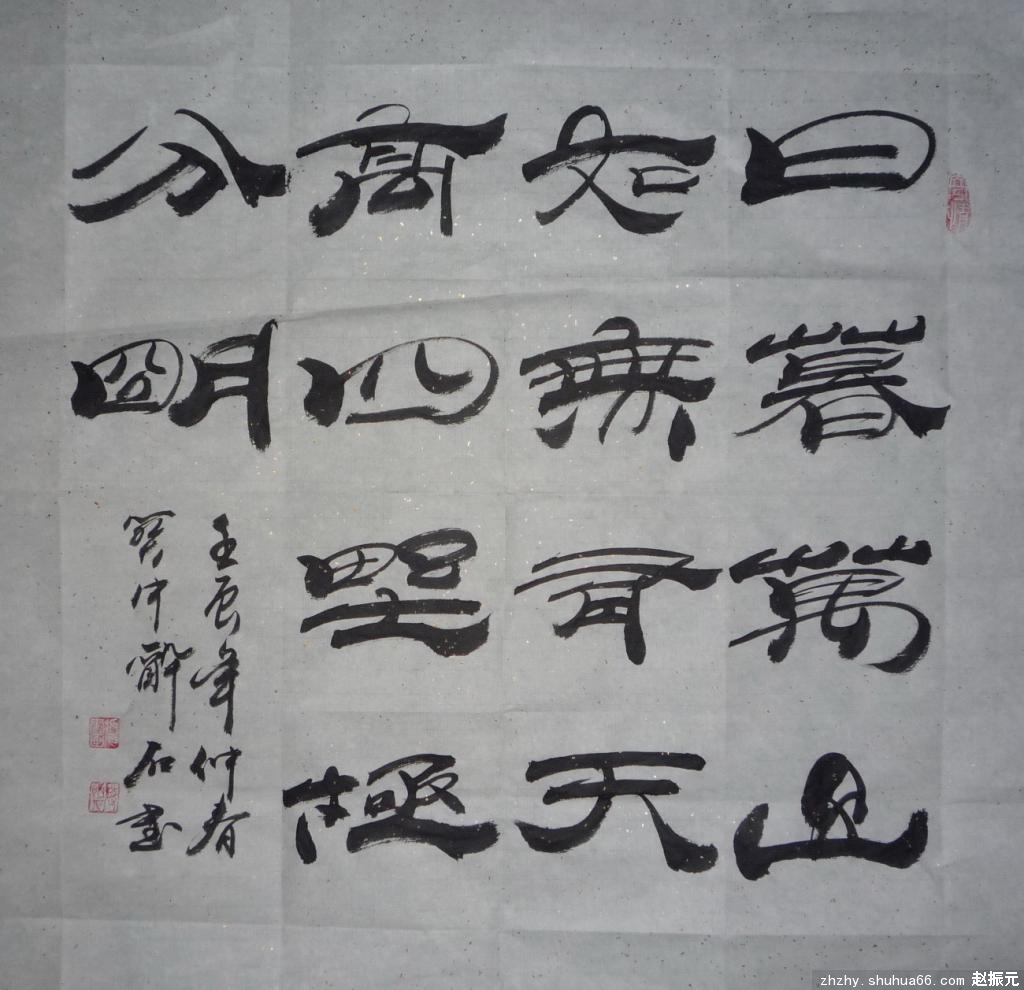 日暮萬山
如無有天
高四野極
分明
壬辰年仲春
石書
zhzhy.shuhua66.com 赵振元